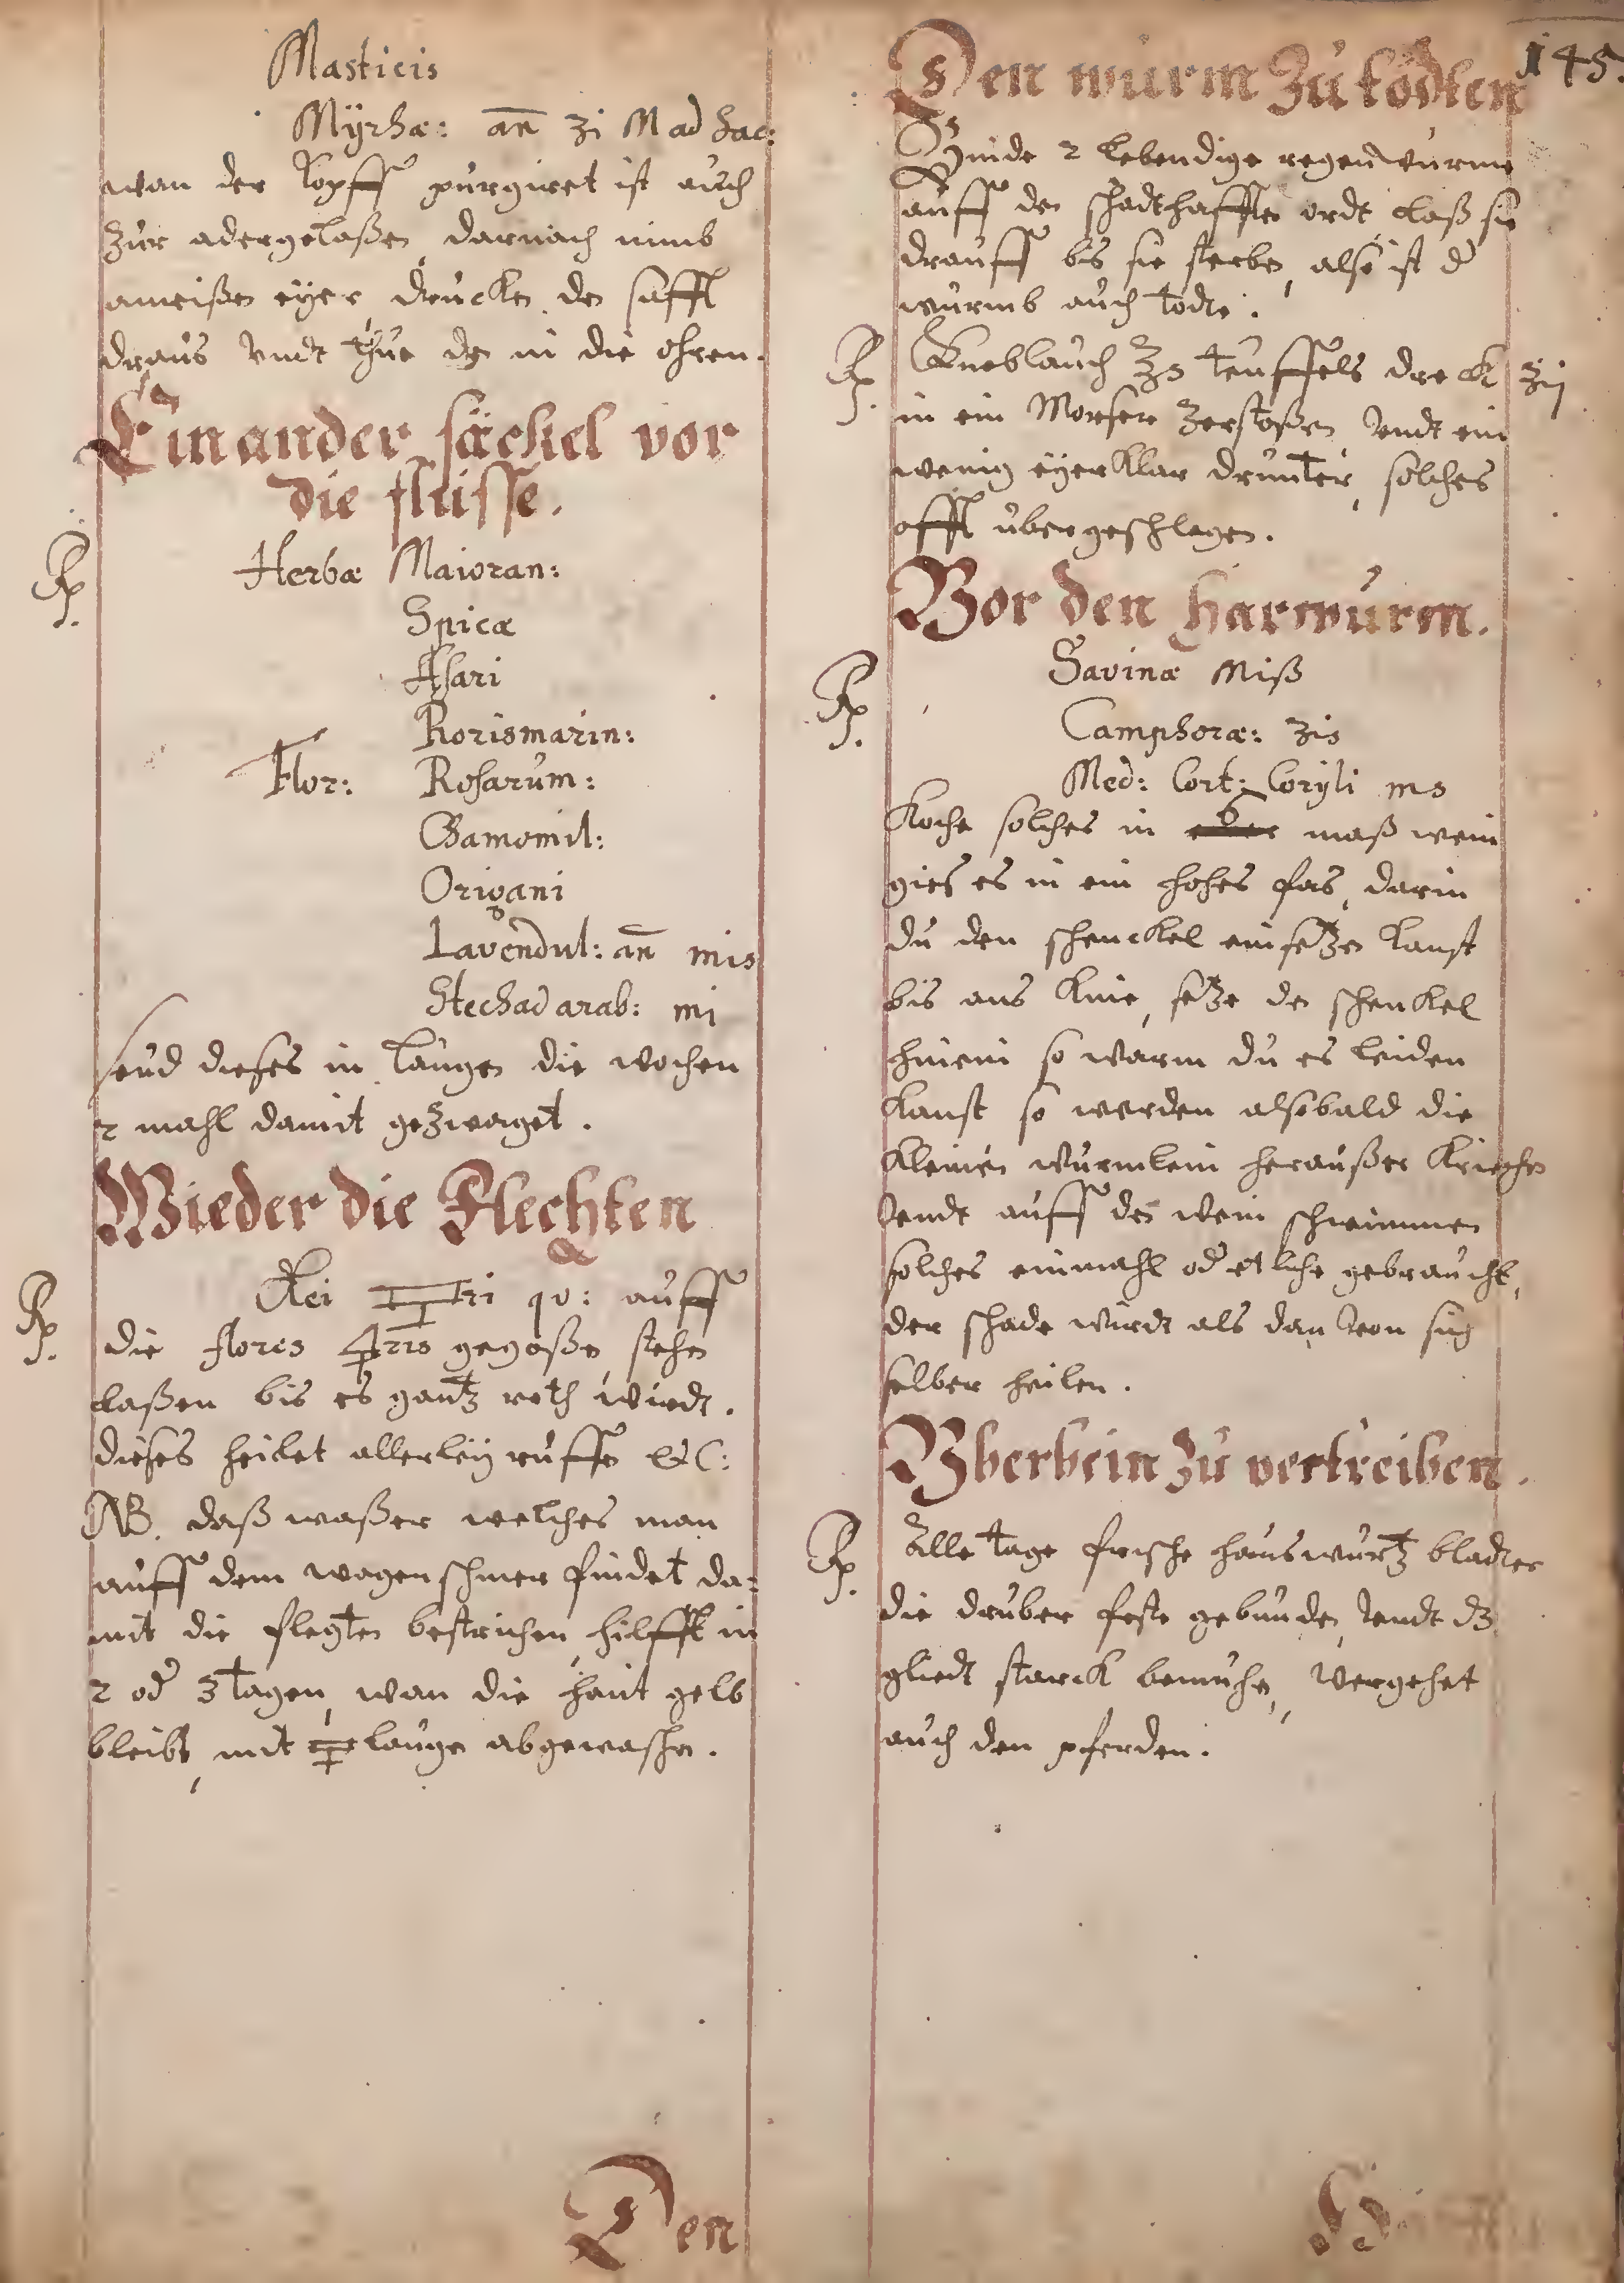 Masticis
Myrhæ: an ʒi M ad sac:
wan der kopff purgiret ist auch
zur adergelaßen, darnach nimb
ameißen eyer, drucke den safft
draus vndt thue den in die ohren.
Ein ander säckel vor
die flüsse.
Rp. Herbæ Maioran:
Spicæ
Asari
Rorismarin:
Flor: Rosarum:
Camomil:
Origani
Lavendul: an mis
Stechad arab: mj
seud dieses in laugen die wochen
2 mahl damit gezwaget.
Wieder die Flechten
Rp. qv: auff
die flores gegoßen, stehen
laßen bis es gantz roth wirdt.
dieses heilet allerley ruffen &c:
NB. daß waßer welches man
auff dem wagenschmer findet da=
mit die flegten bestrichen, hilfft in
2 od 3 tagen, wan die haut gelb
bleibt, mit lauge abgewaschen.
Den
145.
Den wurm zu tödten
Binde 2 lebendige regenwurme
auff den schadthafften ordt laß sie
drauff bis sie sterben, also ist d
wurmb auch todte.
Rp. Kneblauch ʒs teuffels dreck ʒij
in ein Morser zerstoßen vndt ein
wenig eyerklar drunter, solches
offt übergeschlagen.
Vor den harwurm.
Rp. Savinæ Miß
Camphoræ: ʒis
Med: Cort: Coryli ms
Koche solches in maß wein
gies es in ein hohes fas, darin
du den schenckel einsetzen kanst
bis ans knie, setze den schenkel
hinein so warm du es leiden
kanst so werden alsobald die
kleinen wurmlein heraußer kriechen
vndt auff den wein schwimmen
solches einmahl od etliche gebraucht,
der schade wirdt als dan von sig
selber heilen.
Vberbein zu vertreiben.
Rp. Alle tage frische hauswurtz bladter
die druber feste gebunden, vndt dz
gliedt starck bemuhen, vergehet
auch den pferden.